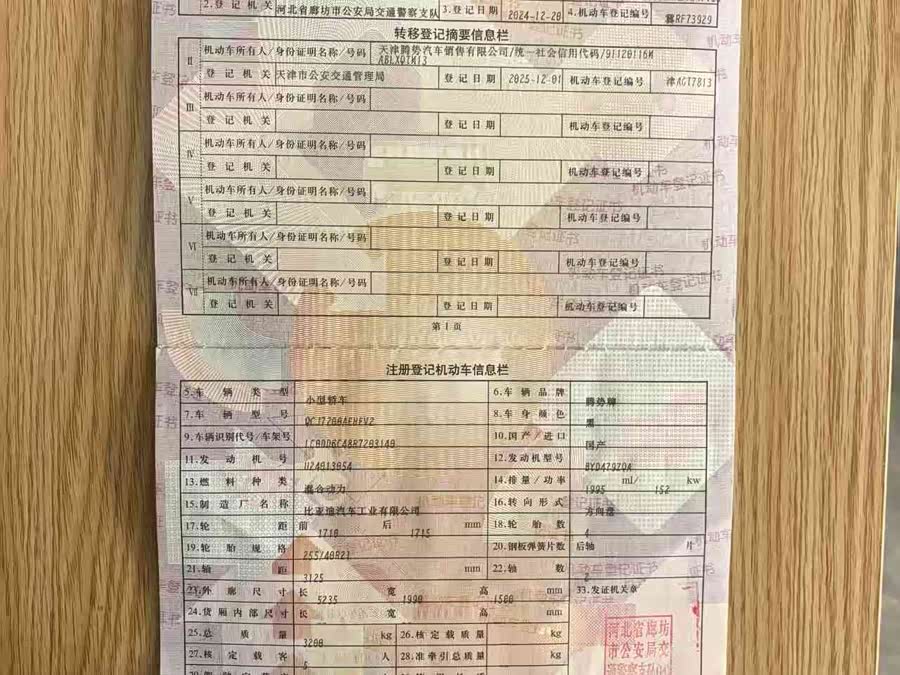 2.登记机关 河北省廊坊市公安局交通警察支队 3.登记日期 2024-12-20 4.机动车登记编号 冀RF73929
转移登记摘要信息栏
II 机动车所有人/身份证明名称/号码 天津腾势汽车销售有限公司/统一社会信用代码/91120116M
ABLXQTM13
登记机关 天津市公安交通管理局 登记日期 2025-12-01 机动车登记编号 津AGT7813
III 机动车所有人/身份证明名称/号码
登记机关 登记日期 机动车登记编号
IV 机动车所有人/身份证明名称/号码
登记机关 登记日期 机动车登记编号
V 机动车所有人/身份证明名称/号码
登记机关 登记日期 机动车登记编号
VI 机动车所有人/身份证明名称/号码
登记机关 登记日期 机动车登记编号
VII 机动车所有人/身份证明名称/号码
登记机关 登记日期 机动车登记编号
第1页
注册登记机动车信息栏
5.车辆类型 小型轿车 6.车辆品牌 腾势牌
7.车辆型号 8.车身颜色 黑
9.车辆识别代号/车架号 10.国产/进口 国产
11.发动机号 12.发动机型号
13.燃料种类 混合动力 14.排量/功率 1995 ml/ 152 kw
15.制造厂名称 比亚迪汽车工业有限公司 16.转向形式 方向盘
17.轮距 前 1710 后 1715 mm 18.轮胎数 4
19.轮胎规格 255/40R21 20.钢板弹簧片数 后轴 片
21.轴距 3125 mm 22.轴数 2
23.外廓尺寸 长 5235 宽 1990 高 1500 mm 33.发证机关章
24.货厢内部尺寸 长 宽 高 mm
25.总质量 3200 kg 26.核定载质量 kg
27.核定载客 5 人 28.准牵引总质量 kg
河北省廊坊
市公安局交